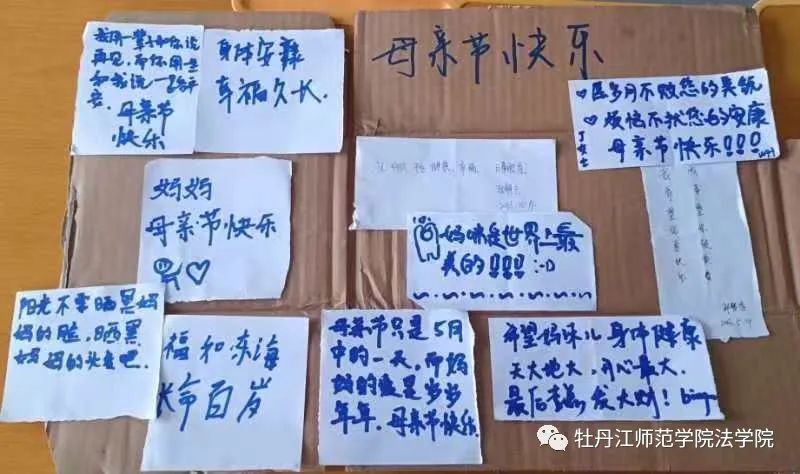 母亲节快乐
我用一辈子和你说
再见,而你用一生
和我说一路平
安。母亲节
快乐
身体安康
幸福久长.
岁月不败您的美貌
烦恼不扰您的安康
母亲节快乐!!!
丁女士
妈妈
母亲节快乐
妈咪是世界上最
美的!!!! :-D
阳光不要晒黑妈
妈的脸,晒黑
妈妈的头发吧.
福如东海
长命百岁
母亲节只是5月
中的一天,而妈
妈的爱是岁岁
年年.母亲节快乐
希望妈咪儿身体健康
天大地大,开心最大.
发大财!
牡丹江师范学院法学院